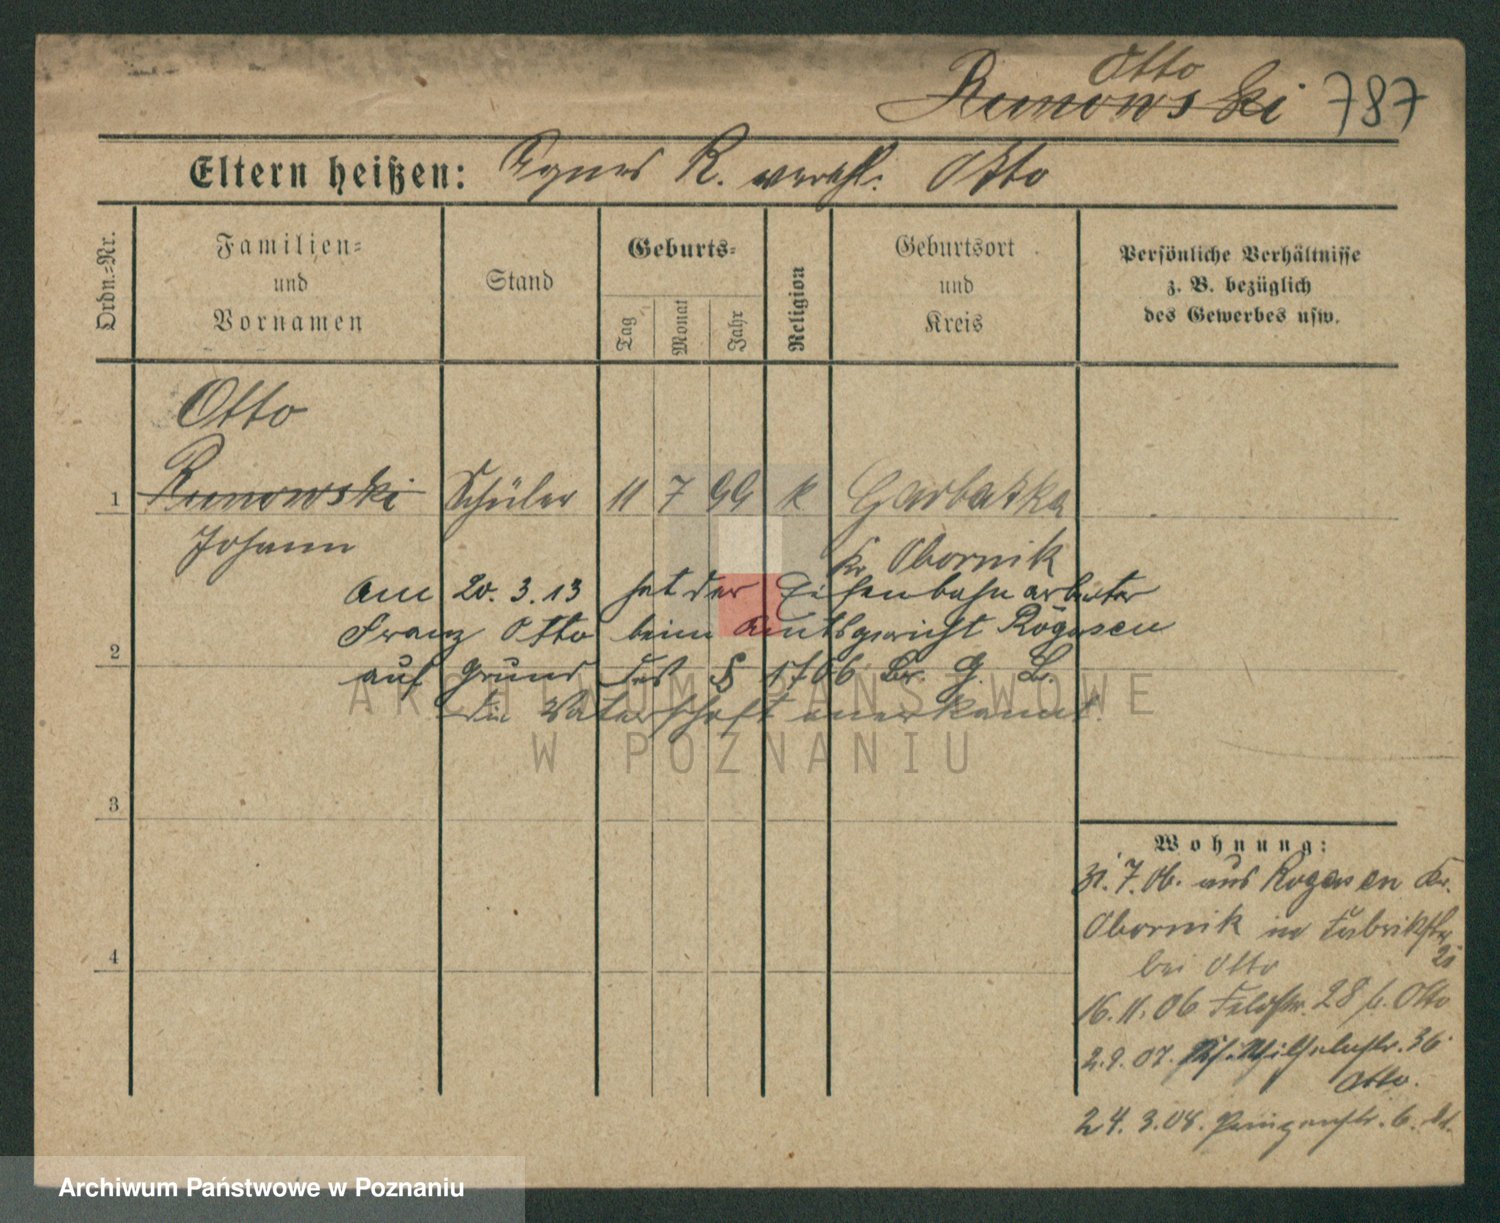 Otto
Runowski 787
Eltern heißen: Agnes R. verehl. Otto
Ordn.-Nr.
Familien-
und
Vornamen
Stand
Geburts-
Tag
Monat
Jahr
Religion
Geburtsort
und
Kreis
Persönliche Verhältnisse
z. B. bezüglich
des Gewerbes usw.
Otto
1 Runowski Schüler 11 7 99 k Garbatka
Johann Kr. Obornik
Am 20. 3. 13 hat der Eisenbahnarbeiter
Franz Otto beim Amtsgericht Rogasen
auf Grund des § 1706 B. G. B.
die Vaterschaft anerkannt.
2
3
4
Wohnung:
31. 7. 06. aus Rogasen Kr.
Obornik in Fabrikstr.
21
bei Otto
16. 11. 06 Feldstr. 28 b. Otto
2. 9. 07. 36
Otto.
24. 3. 08. 6.
ARCHIWUM PAŃSTWOWE
W POZNANIU
Archiwum Państwowe w Poznaniu